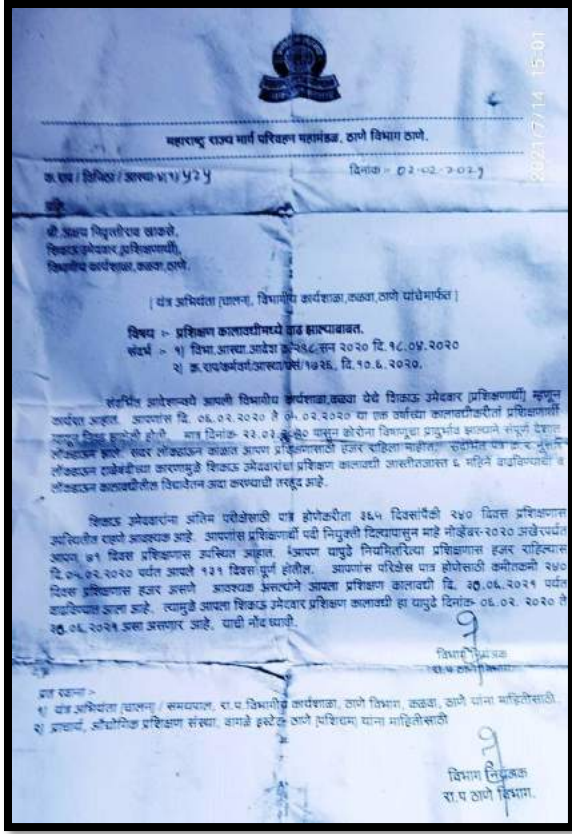 2021/7/14 15:01
महाराष्ट्र राज्य मार्ग परिवहन महामंडळ, ठाणे विभाग ठाणे.
क्र.राप / विनिठा / आस्था-४(१) ५२५ दिनांक :- 02-02-2021
प्रति,
श्री.अक्षय निवृत्तीराव खाकसे,
शिकाऊ उमेदवार,(प्रशिक्षणार्थी),
विभागीय कार्यशाळा,कळवा,ठाणे.
[ यंत्र अभियंता (चालन), विभागीय कार्यशाळा,कळवा,ठाणे यांचेमार्फत ]
विषय :- प्रशिक्षण कालावधीमध्ये वाढ झाल्याबाबत.
संदर्भ :- १) विभा.आस्था.आदेश सन २०२० दि.१८.०४.२०२०
२) क्र.राप/कर्मवर्ग/आस्था/ १७२६, दि.१०.६.२०२०.
संदर्भित आदेशान्वये आपली विभागीय कार्यशाळा,कळवा येथे शिकाऊ उमेदवार (प्रशिक्षणार्थी) म्हणून
कार्यरत आहात. आपणांस दि. ०६.०२.२०२० ते ०२.२०२० या एक वर्षाच्या कालावधीकरीता प्रशिक्षणार्थी
झालेली होती. मात्र दिनांक- २३.०३. पासून कोरोना विषाणूचा प्रादुर्भाव झाल्याने संपूर्ण देशात
लॉकडाऊन झाले. सदर लॉकडाऊन काळात आपण प्रशिक्षणासाठी हजर राहिला नाहीत. संदर्भित पत्र क्र.२ नुसार
लॉकडाऊन टाळेबंदीच्या कारणामुळे शिकाऊ उमेदवारांचा प्रशिक्षण कालावधी जास्तीतजास्त ६ महिने वाढविण्याची व
लॉकडाऊन कालावधीतील विद्यावेतन अदा करण्याची तरतूद आहे.
शिकाऊ उमेदवारांना अंतिम परीक्षेसाठी पात्र होणेकरीता ३६५ दिवसांपैकी २४० दिवस प्रशिक्षणास
उपस्थितीत राहणे आवश्यक आहे. आपणांस प्रशिक्षणार्थी पदी नियुक्ती दिल्यापासून माहे नोव्हेंबर-२०२० अखेरपर्यंत
आपण ७१ दिवस प्रशिक्षणास उपस्थित आहात. आपण यापुढे नियमितरित्या प्रशिक्षणास हजर राहिल्यास
दि. ०२.२०२० पर्यंत आपले १३१ दिवस पूर्ण होतील. आपणांस परिक्षेस पात्र होणेसाठी कमीतकमी २४०
दिवस प्रशिक्षणास हजर असणे आवश्यक असल्याने आपला प्रशिक्षण कालावधी दि. ०६.२०२१ पर्यंत
वाढविण्यात आला आहे. त्यामुळे आपला शिकाऊ उमेदवार प्रशिक्षण कालावधी हा यापुढे दिनांक- ०६.०२. २०२० ते
०६.२०२१ असा असणार आहे. याची नोंद घ्यावी.
विभाग नियंत्रक
रा.प ठाणे विभाग.
प्रत रवाना :-
१) यंत्र अभियंता (चालन) / समयपाल, रा.प.विभागीय कार्यशाळा, ठाणे विभाग, कळवा, ठाणे यांना माहितीसाठी.
२) प्राचार्य, औद्योगिक प्रशिक्षण संस्था, वागळे इस्टेट ठाणे (पश्चिम) यांना माहितीसाठी
विभाग नियंत्रक
रा.प ठाणे विभाग.